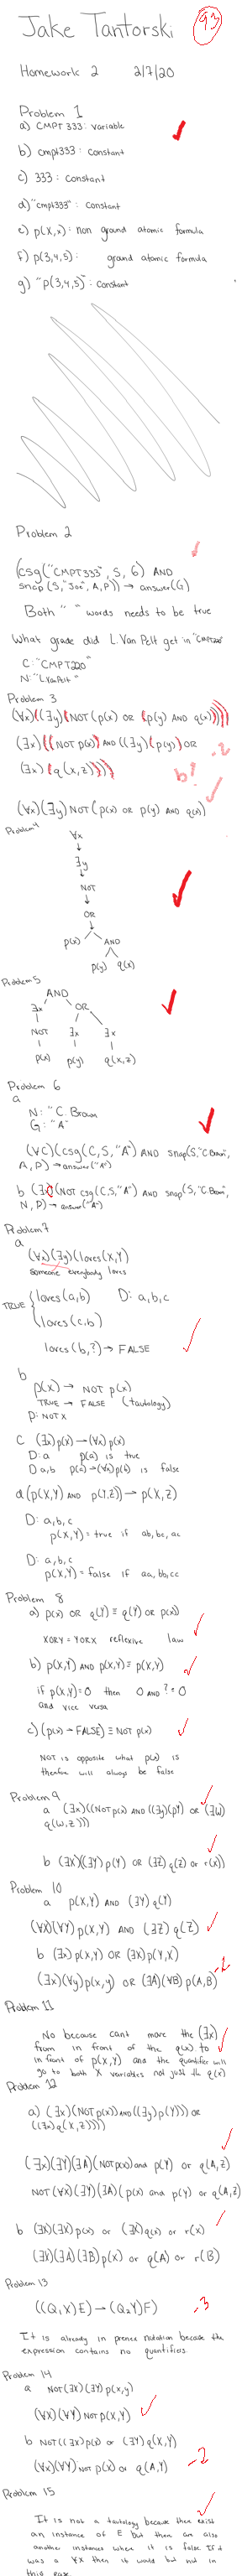 Jake Tantorski
93
Homework 2 2/7/20
Problem 1
a) CMPT 333: Variable
b) cmpt333: Constant
c) 333: Constant
d) "cmpt333": Constant
e) p(X,x): non ground atomic formula
f) p(3,4,5): ground atomic formula
g) "p(3,4,5)": Constant
Problem 2
(csg("CMPT333", S, G) AND
snap(S,"Joe", A,P)) → answer(G)
Both " " words needs to be true
What grade did L. Van Pelt get in "CMPT220"
C: "CMPT220"
N: "L.VanPelt"
Problem 3
(∀x)((∃y)(NOT(p(x) OR (p(y) AND q(x)))))
(∃x)((NOT p(x)) AND ((∃y)(p(y)) OR
-2
(∃x)(q(x,z))))
b?
(∀x)(∃y) NOT(p(x) OR p(y) AND q(x))
Problem 4
∀x
∃y
NOT
OR
p(x) AND
p(y) q(x)
Problem 5
AND
∃x OR
NOT ∃x ∃x
p(x) p(y) q(x,z)
Problem 6
a
N: "C. Brown
G: "A"
(∀C)(csg(C,S,"A") AND snap(S,"C.Brown",
A, P) → answer("A")
b (∃C)(NOT csg(C,S,"A") AND snap(S,"C.Brown",
N, P) → answer("A")
Problem 7
a
(∀x)(∃y)(loves(X,Y)
someone everybody loves
TRUE { loves(a,b) D: a,b,c
loves(c,b)
loves(b,?) → FALSE
b
p(x) → NOT p(x)
TRUE → FALSE (tautology)
p: NOT X
C (∃x)p(x) → (∀x)p(x)
D: a p(a) is true
D a,b p(a) → (∀x)p(b) is false
d (p(X,Y) AND p(Y,Z)) → p(X,Z)
D: a,b,c
p(X,Y) = true if ab, bc, ac
D: a,b,c
p(X,Y) = false if aa, bb, cc
Problem 8
a) p(x) OR q(Y) ≡ q(Y) OR p(x)
XORY = YORX reflexive law
b) p(X,Y) AND p(X,Y) ≡ p(X,Y)
if p(X,Y)=0 then 0 AND ? = 0
and vice versa
c) (p(x) → FALSE) ≡ NOT p(x)
NOT is opposite what p(x) is
therefore will always be false
Problem 9
a (∃x)((NOT p(x) AND ((∃y)(pY) OR (∃W)
q(W,Z)))
b (∃X)((∃Y) p(Y) OR (∃Z) q(Z) or r(x))
Problem 10
a p(X,Y) AND (∃Y) q(Y)
(∀X)(∀Y) p(X,Y) AND (∃Z) q(Z)
b (∃x) p(X,Y) OR (∃X) p(Y,X)
-2
(∃x)(∀y) p(x,y) OR (∃A)(∀B) p(A,B)
Problem 11
No because cant move the (∃x)
from in front of the q(x) to
in front of p(X,Y) and the quantifier will
go to both X variables not just the q(x)
Problem 12
a) (∃x)(NOT p(x)) AND ((∃y)(p(Y))) OR
((∃x)q(X,Z))))
(∃x)(∃Y)(∃A)(NOT p(x) and p(Y) or q(A,Z)
NOT(∀X)(∃Y)(∃A)(p(x) and p(Y) or q(A,Z)
b (∃X)(∃X) p(x) or (∃X)q(x) or r(X)
(∃X)(∃A)(∃B) p(X) or q(A) or r(B)
Problem 13
((Q₁X)E) → (Q₂Y)F)
-3
It is already in prenex notation because the
expression contains no quantifiers
Problem 14
a NOT(∃X)(∃Y) p(x,y)
(∀X)(∀Y) NOT p(X,Y)
b NOT((∃X)p(x) or (∃Y) q(X,Y)
(∀X)(∀Y) NOT p(x) or q(A,Y)
-2
Problem 15
It is not a tautology because there exist
an instance of E but there are also
another instances where it is false If it
was a ∀X then it would but not in
this case